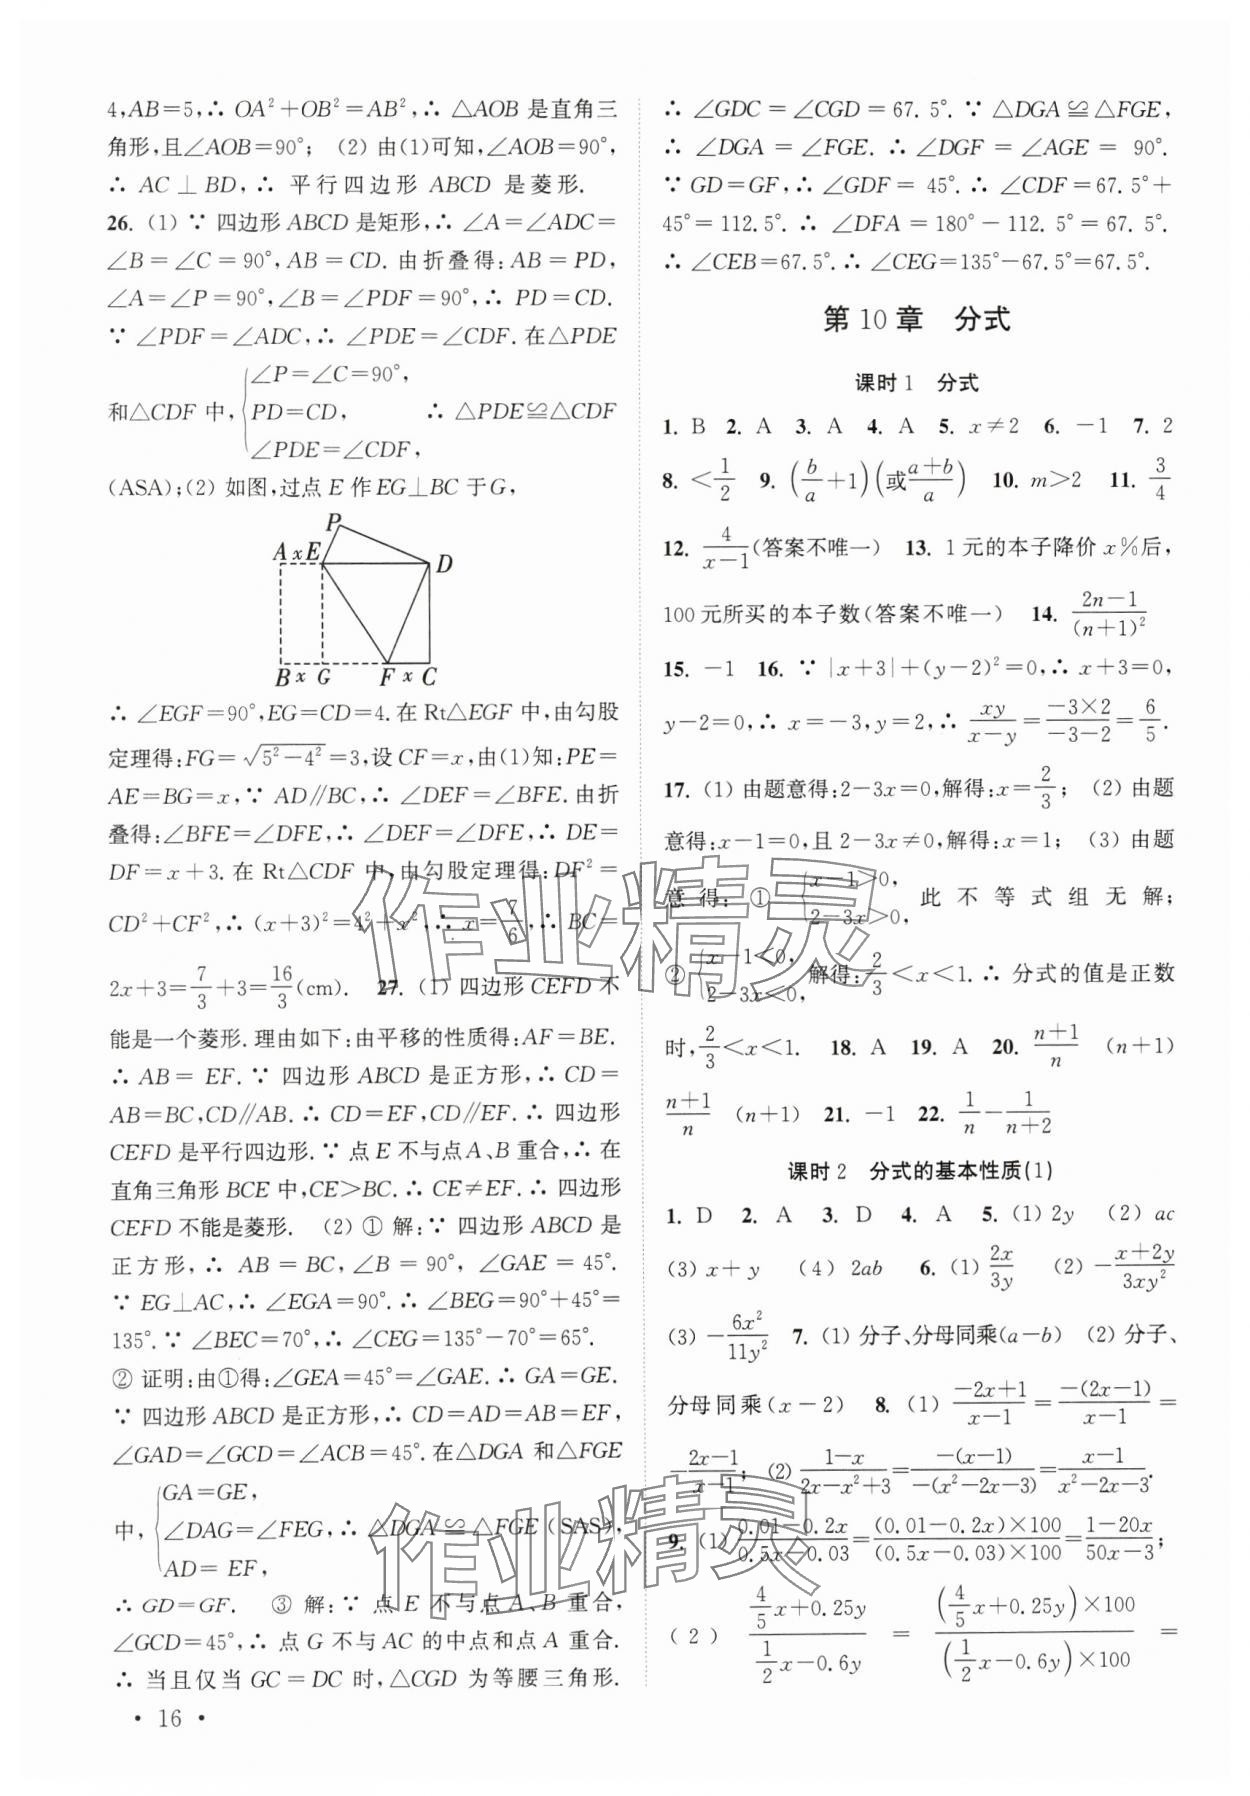 4,AB=5,∴ OA²+OB²=AB²,∴ △AOB 是直角三
角形,且∠AOB=90°; (2) 由(1)可知,∠AOB=90°,
∴ AC⊥BD,∴ 平行四边形 ABCD 是菱形.
26. (1) ∵ 四边形 ABCD 是矩形,∴ ∠A=∠ADC=
∠B=∠C=90°,AB=CD. 由折叠得:AB=PD,
∠A=∠P=90°,∠B=∠PDF=90°,∴ PD=CD.
∵ ∠PDF=∠ADC,∴ ∠PDE=∠CDF. 在△PDE
和△CDF 中, {∠P=∠C=90°, PD=CD, ∠PDE=∠CDF, ∴ △PDE≌△CDF
(ASA);(2) 如图,过点 E 作EG⊥BC 于G,
P
A x E D
B x G F x C
∴ ∠EGF=90°,EG=CD=4. 在 Rt△EGF 中,由勾股
定理得:FG=√(5²-4²)=3,设 CF=x,由(1)知:PE=
AE=BG=x,∵ AD∥BC,∴ ∠DEF=∠BFE. 由折
叠得:∠BFE=∠DFE,∴ ∠DEF=∠DFE,∴ DE=
DF=x+3. 在 Rt△CDF 中,由勾股定理得:DF²=
CD²+CF²,∴ (x+3)²=4²+x²,∴ x=7/6,∴ BC=
2x+3=7/3+3=16/3(cm). 27. (1) 四边形 CEFD 不
能是一个菱形. 理由如下:由平移的性质得:AF=BE.
∴ AB= EF. ∵ 四边形 ABCD 是正方形,∴ CD=
AB=BC,CD∥AB. ∴ CD=EF,CD∥EF. ∴ 四边形
CEFD 是平行四边形. ∵ 点 E 不与点A、B 重合,∴ 在
直角三角形 BCE 中,CE>BC. ∴ CE≠EF. ∴ 四边形
CEFD 不能是菱形. (2) ① 解:∵ 四边形 ABCD 是
正方形,∴ AB=BC,∠B=90°, ∠GAE=45°.
∵ EG⊥AC,∴ ∠EGA=90°. ∴ ∠BEG=90°+45°=
135°. ∵ ∠BEC=70°,∴ ∠CEG=135°-70°=65°.
② 证明:由①得:∠GEA=45°=∠GAE. ∴ GA=GE.
∵ 四边形 ABCD 是正方形,∴ CD=AD=AB=EF,
∠GAD=∠GCD=∠ACB=45°. 在△DGA 和△FGE
中, {GA=GE, ∠DAG=∠FEG, AD=EF, ∴ △DGA≌△FGE (SAS),
∴ GD=GF. ③ 解:∵ 点 E 不与点 A、B 重合,
∠GCD=45°,∴ 点 G 不与 AC 的中点和点 A 重合.
∴ 当且仅当 GC=DC 时,△CGD 为等腰三角形.
• 16 •
∴ ∠GDC=∠CGD=67.5°. ∵ △DGA≌△FGE,
∴ ∠DGA=∠FGE. ∴ ∠DGF=∠AGE= 90°.
∵ GD=GF,∴ ∠GDF= 45°. ∴ ∠CDF=67.5°+
45°=112.5°. ∴ ∠DFA=180°-112.5°=67.5°.
∴ ∠CEB=67.5°. ∴ ∠CEG=135°-67.5°=67.5°.
第 10 章 分式
课时 1 分式
1. B 2. A 3. A 4. A 5. x≠2 6. -1 7. 2
8. <1/2 9. (b/a+1)(或(a+b)/a) 10. m>2 11. 3/4
12. 4/(x-1)(答案不唯一) 13. 1 元的本子降价 x%后,
100 元所买的本子数(答案不唯一) 14. (2n-1)/(n+1)²
15. -1 16. ∵ |x+3|+(y-2)²=0,∴ x+3=0,
y-2=0,∴ x=-3,y=2,∴ xy/(x-y)=(-3×2)/(-3-2)=6/5.
17. (1) 由题意得:2-3x=0,解得:x=2/3; (2) 由题
意得:x-1=0,且 2-3x≠0,解得:x=1; (3) 由题
意得: ① {x-1>0, 2-3x>0, 此不等式组无解;
② {x-1<0, 2-3x<0, 解得:2/3<x<1. ∴ 分式的值是正数
时,2/3<x<1. 18. A 19. A 20. (n+1)/n (n+1)
(n+1)/n (n+1) 21. -1 22. 1/n-1/(n+2)
课时 2 分式的基本性质(1)
1. D 2. A 3. D 4. A 5. (1) 2y (2) ac
(3) x+y (4) 2ab 6. (1) 2x/3y (2) -(x+2y)/3xy²
(3) -6x²/11y² 7. (1) 分子、分母同乘(a-b) (2) 分子、
分母同乘(x-2) 8. (1) (-2x+1)/(x-1)=-(2x-1)/(x-1)=
-(2x-1)/(x-1); (2) (1-x)/(2x-x²+3)=-(x-1)/-(x²-2x-3)=(x-1)/(x²-2x-3).
9. (1) (0.01-0.2x)/(0.5x-0.03)=((0.01-0.2x)×100)/((0.5x-0.03)×100)=(1-20x)/(50x-3);
(2) (4/5x+0.25y)/(1/2x-0.6y)=((4/5x+0.25y)×100)/((1/2x-0.6y)×100)=
作业精灵
作业精灵